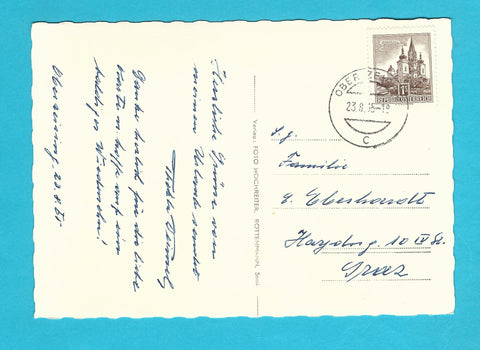 Herzliche Grüße von
meinem Urlaub sendet
Danke herzlich für die liebe
Karte u. hoffe auf ein
baldiges Wiedersehn!
23.8.65
Verlag: FOTO HOCHREITER, ROTTENMANN, Stmk.
OBER ZE
23.8.65-18
c
REPUBLIK ÖSTERREICH
S.g.
Familie
G. Eberhardt
Haydng. 10 IV St.
Graz